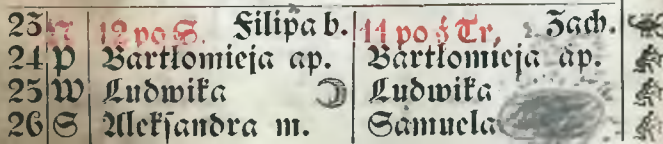 23 N 12 po S. Filipa b. 11 po ś Tr, Zach.
24 P Bartłomieja ap. Bartłomieja ap.
25 W Ludwika Ludwika
26 S Alekſandra m. Samuela